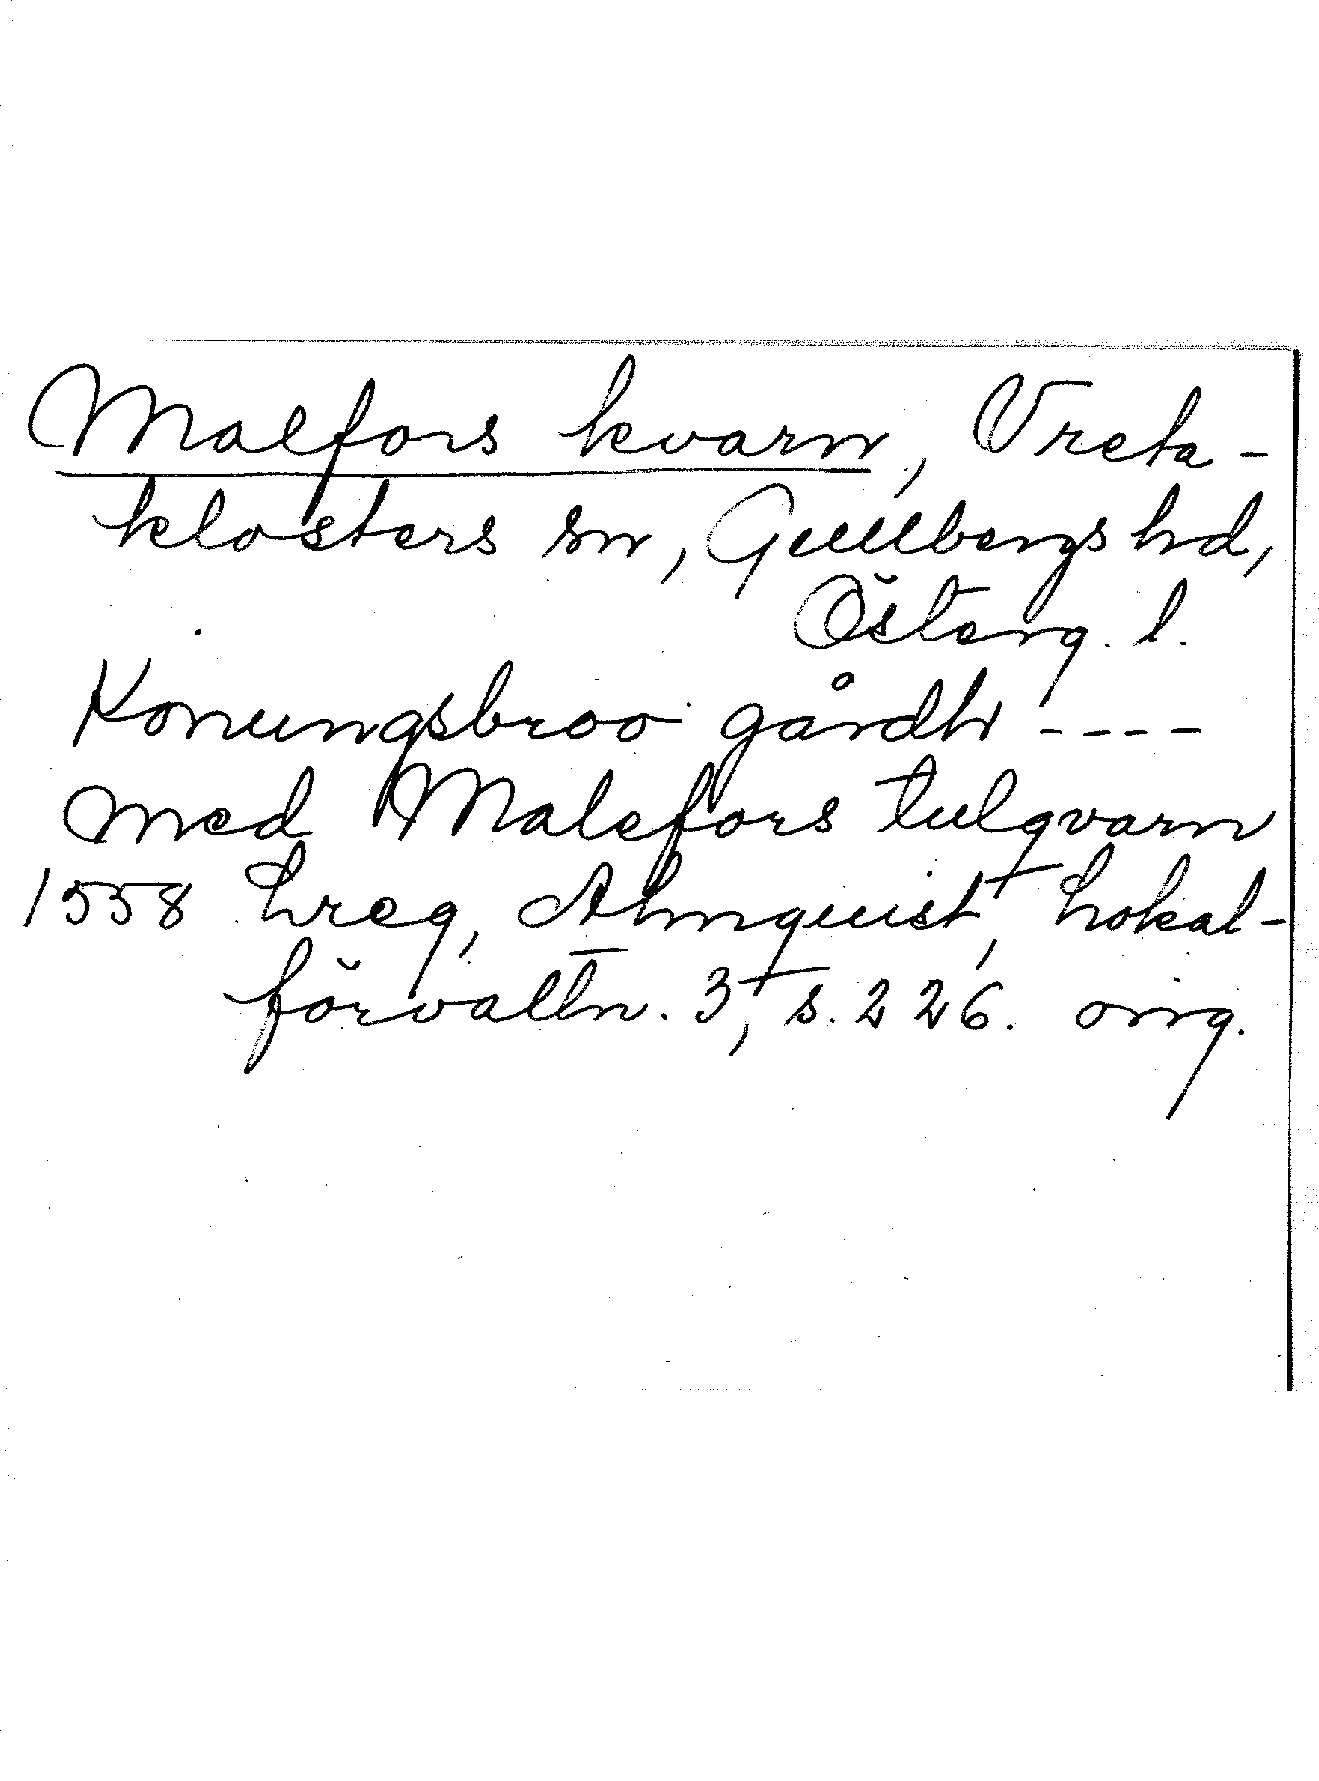 Malfors kvarn, Vreta-
klosters sn, Gullbergs hd,
Österg. l.
Konungsbroo gårdh ----
med Malefors tulqvarn
1558 Lreg, Almquist, Lokal-
förvaltn. 3, s. 226. orig.